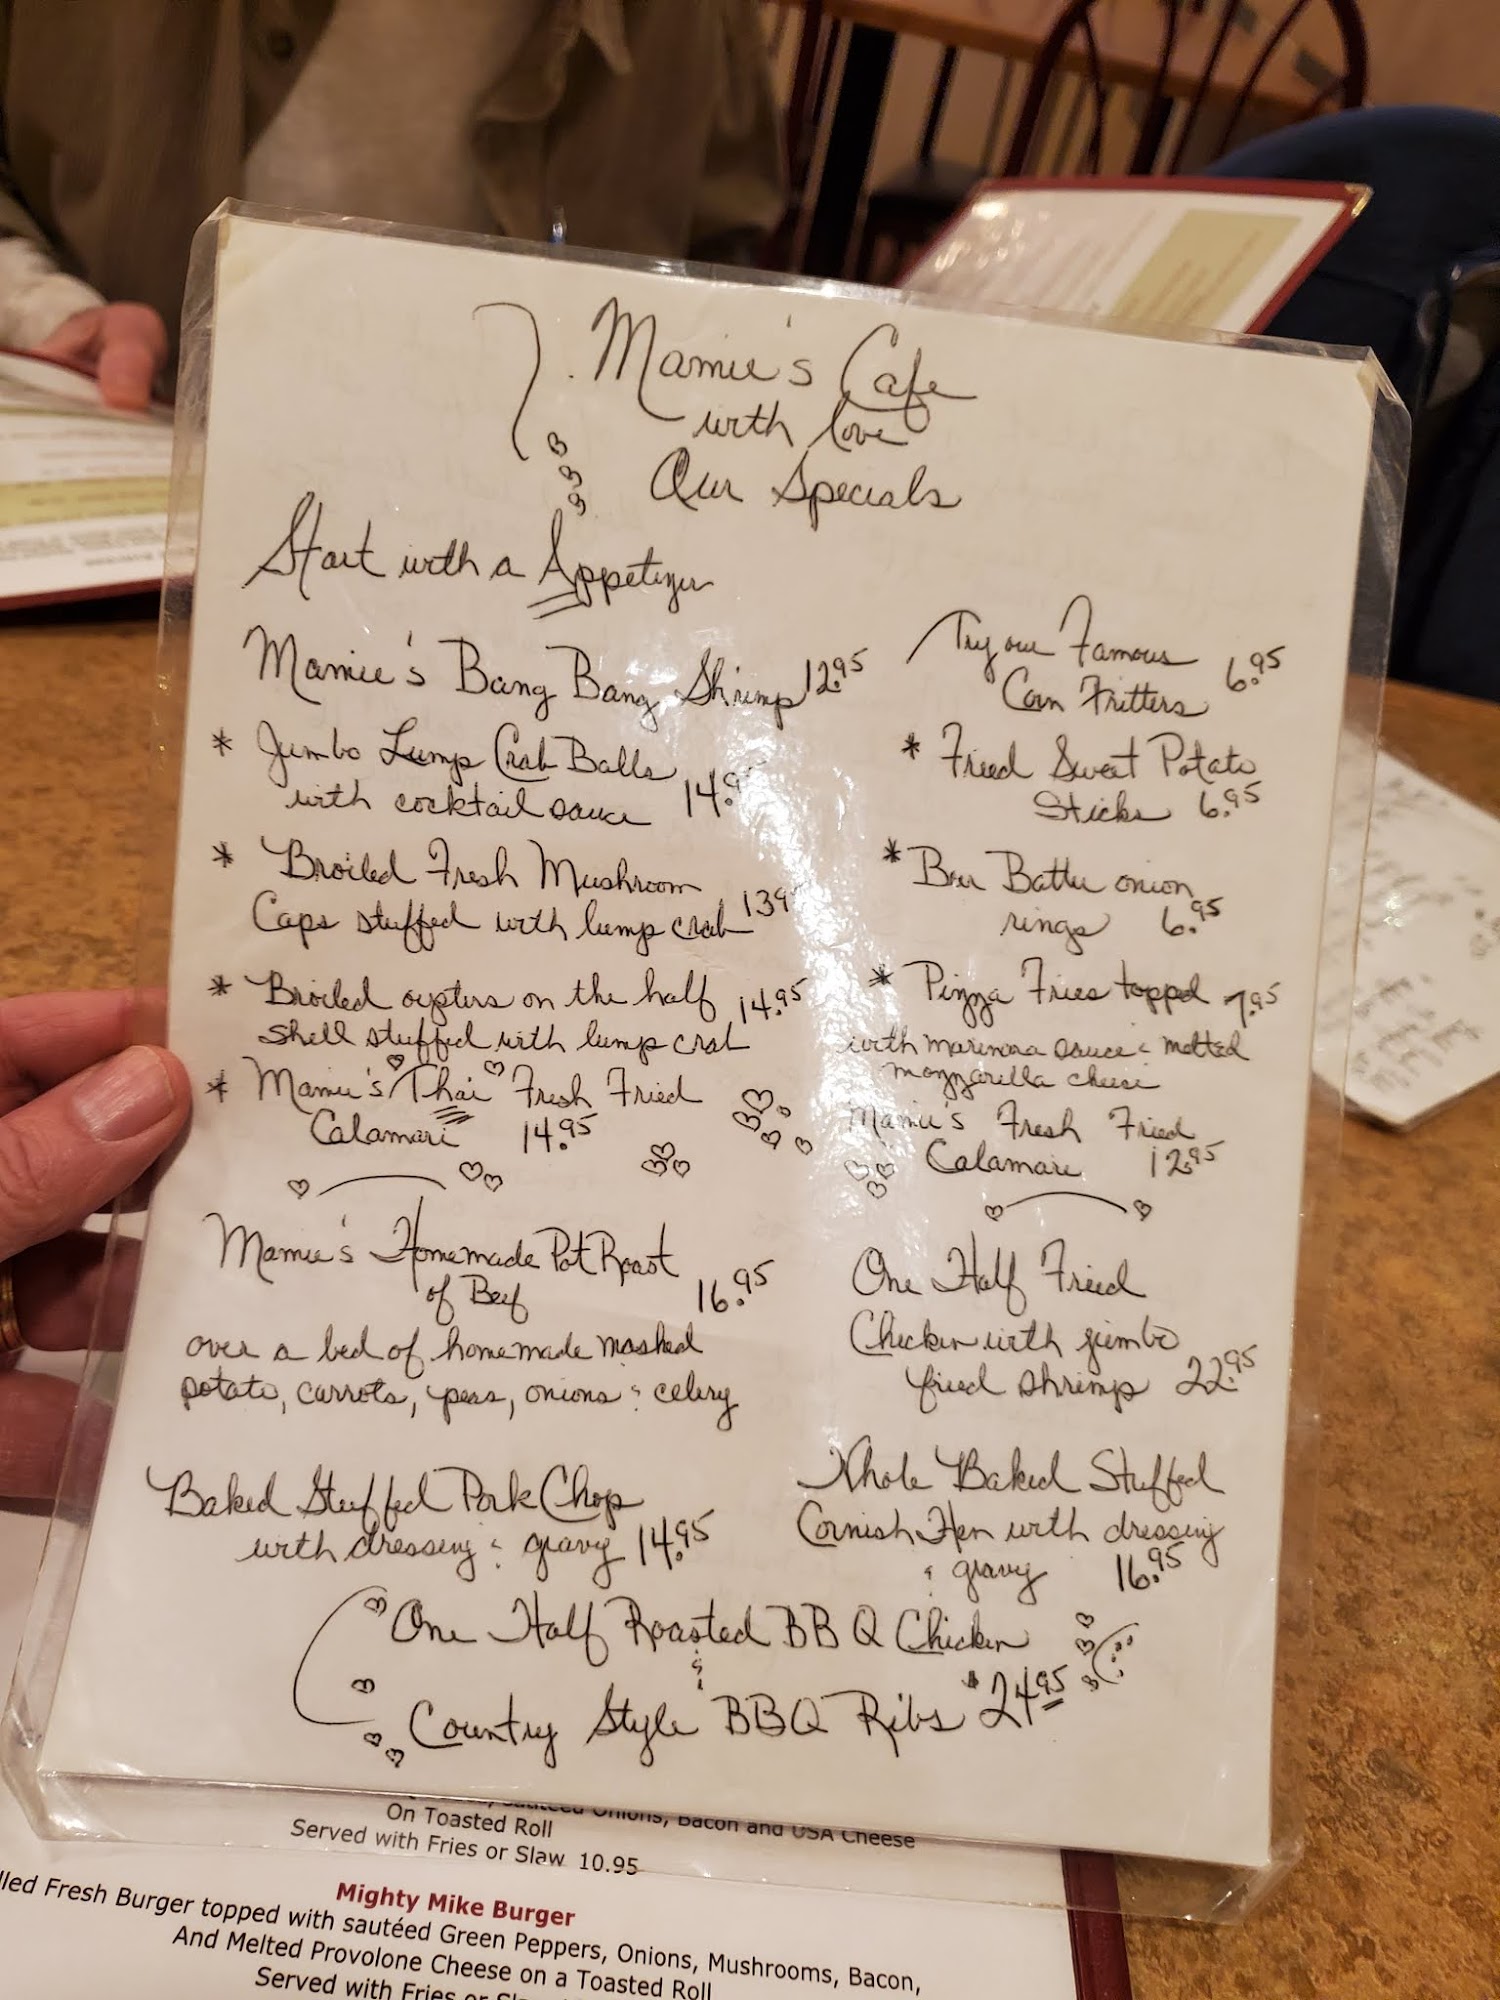 Mamie's Cafe
with love
Our Specials
Start with a Appetizer
Mamie's Bang Bang Shrimp 12.95
* Jumbo Lump Crab Balls
with cocktail sauce 14.9
* Broiled Fresh Mushroom
Caps stuffed with lump crab 139
* Broiled oysters on the half 14.95
shell stuffed with lump crab
* Mamie's Thai Fresh Fried
Calamari 14.95
Try our Famous
Corn Fritters 6.95
* Fried Sweet Potato
Sticks 6.95
* Beer Batter onion
rings 6.95
* Pizza Fries topped 7.95
with marinara sauce & melted
mozzarella cheese
Mamie's Fresh Fried
Calamari 12.95
Mamie's Homemade Pot Roast
of Beef 16.95
over a bed of homemade mashed
potato, carrots, peas, onions & celery
One Half Fried
Chicken with jumbo
fried shrimp 22.95
Baked Stuffed Pork Chop
with dressing & gravy 14.95
Whole Baked Stuffed
Cornish Hen with dressing
& gravy 16.95
One Half Roasted BBQ Chicken
&
Country Style BBQ Ribs $24.95
Onions, Bacon and USA Cheese
On Toasted Roll
Served with Fries or Slaw 10.95
Mighty Mike Burger
Fresh Burger topped with sautéed Green Peppers, Onions, Mushrooms, Bacon,
And Melted Provolone Cheese on a Toasted Roll
Served with Fries or